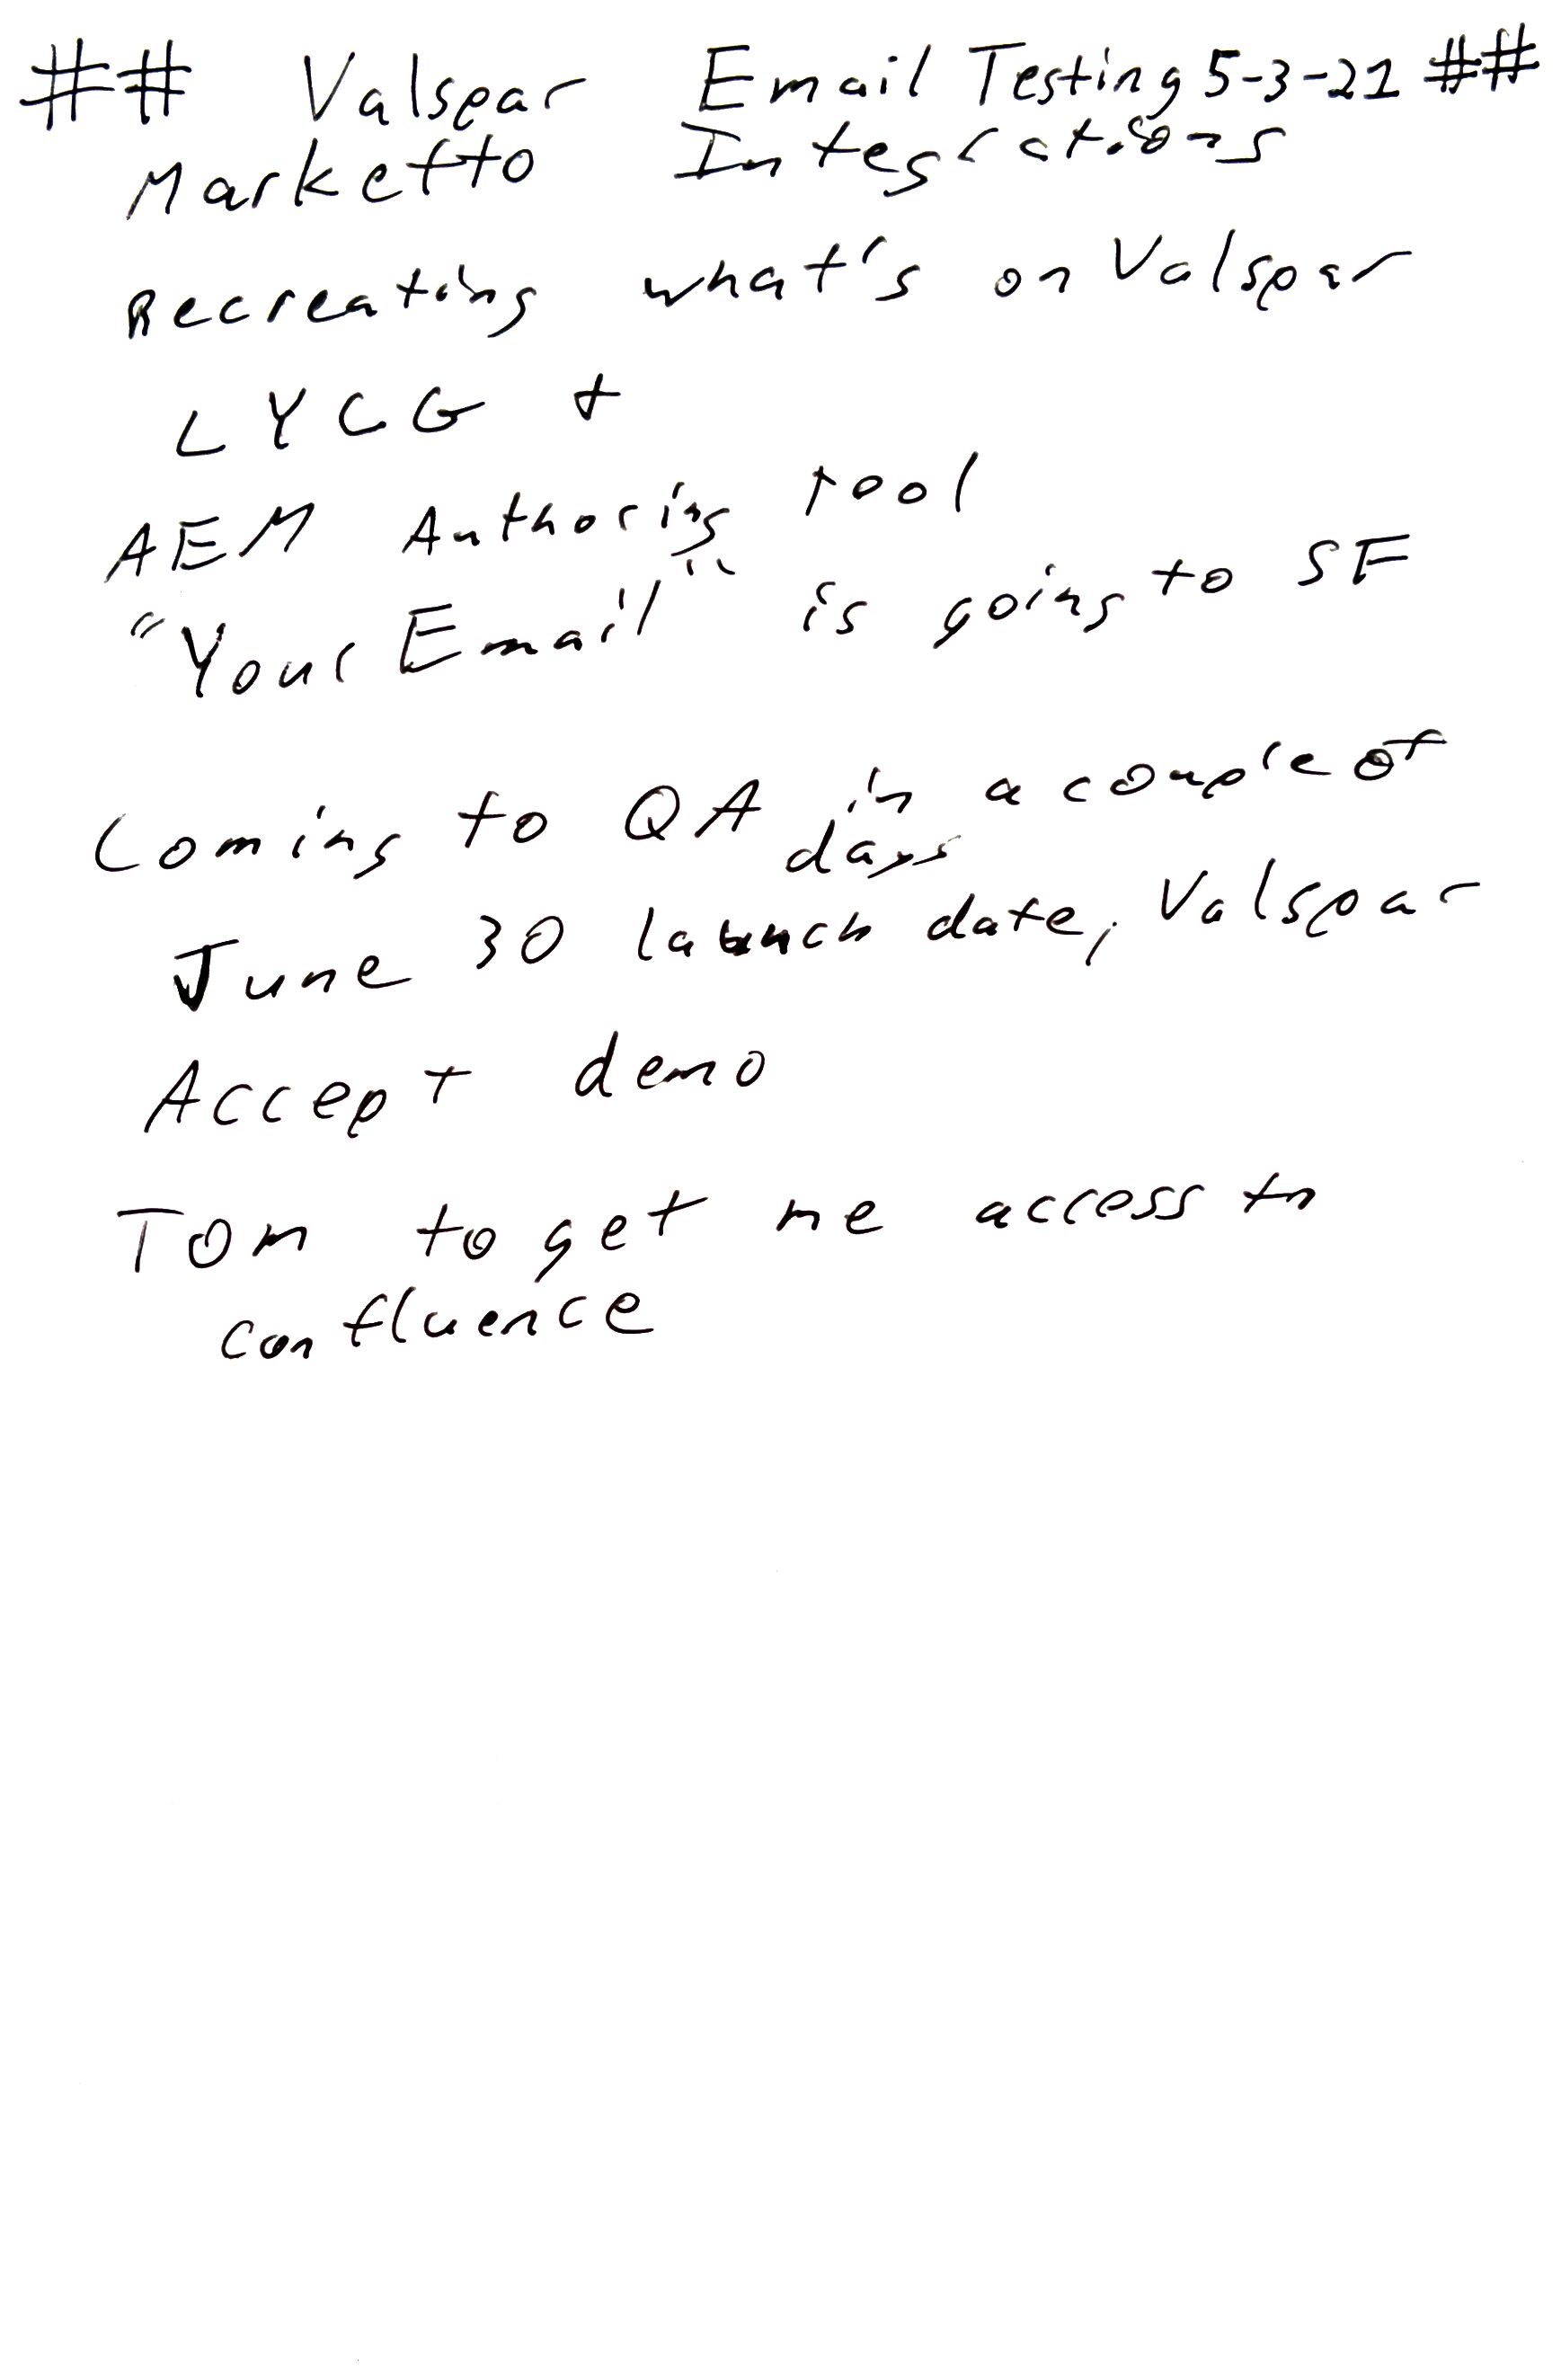 ## Valspar Email Testing 5-3-21 ##
Marketto Integrations
Recreating what's on Valspar
LYCG +
AEM Authoring tool
"Your Email" is going to SF
Coming to QA in a couple of
days
June 30 launch date, Valspar
Accept demo
Tom to get me access to
confluence